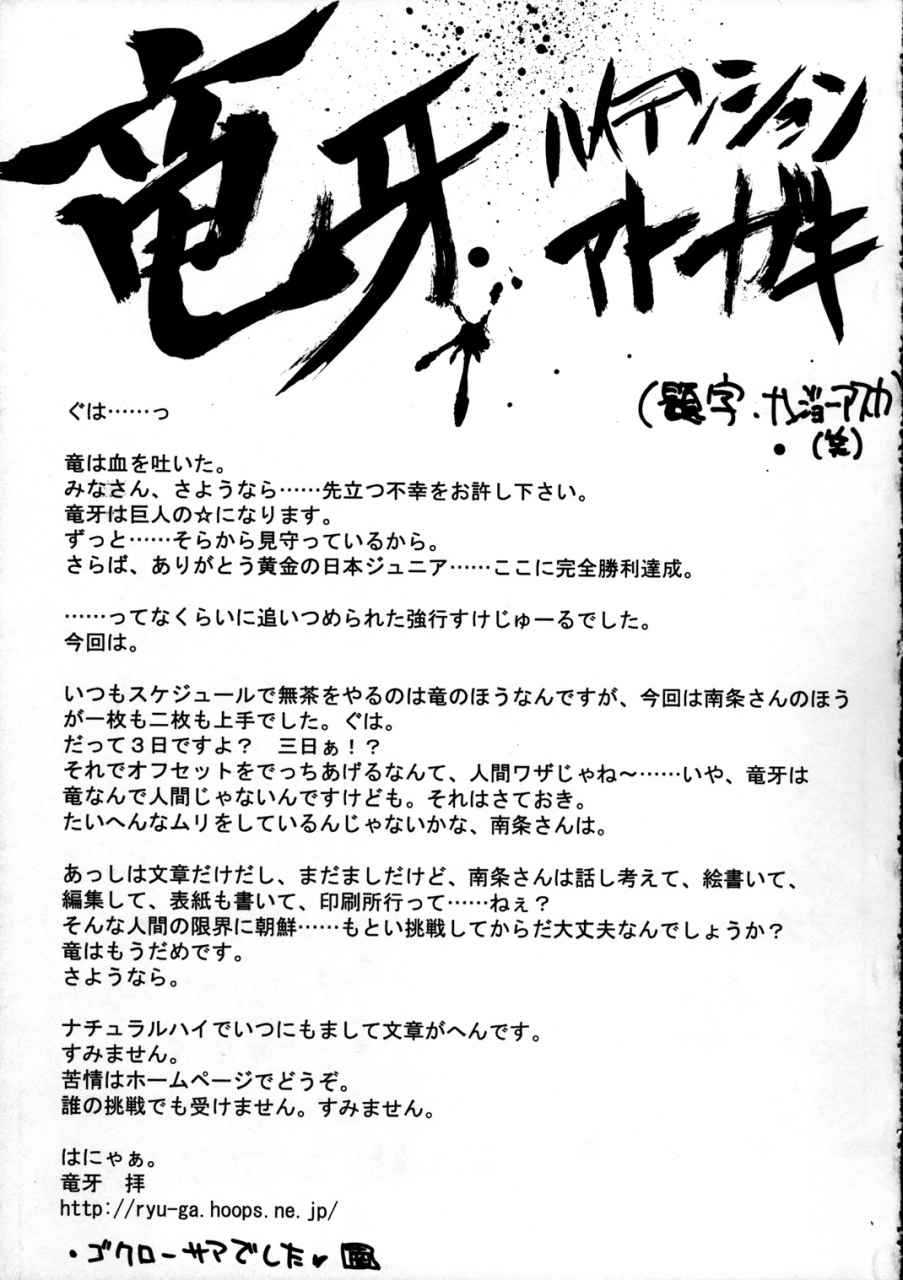 竜牙
ハメテンション
アトガキ
(題字・ナンジョーアスカ
(笑)
ぐは……っ
竜は血を吐いた。
みなさん、さようなら……先立つ不幸をお許し下さい。
竜牙は巨人の☆になります。
ずっと……そらから見守っているから。
さらば、ありがとう黄金の日本ジュニア……ここに完全勝利達成。
……ってなくらいに追いつめられた強行すけじゅーるでした。
今回は。
いつもスケジュールで無茶をやるのは竜のほうなんですが、今回は南条さんのほう
が一枚も二枚も上手でした。ぐは。
だって３日ですよ？　三日ぁ！？
それでオフセットをでっちあげるなんて、人間ワザじゃね～……いや、竜牙は
竜なんで人間じゃないんですけども。それはさておき。
たいへんなムリをしているんじゃないかな、南条さんは。
あっしは文章だけだし、まだましだけど、南条さんは話し考えて、絵書いて、
編集して、表紙も書いて、印刷所行って……ねぇ？
そんな人間の限界に朝鮮……もとい挑戦してからだ大丈夫なんでしょうか？
竜はもうだめです。
さようなら。
ナチュラルハイでいつにもまして文章がへんです。
すみません。
苦情はホームページでどうぞ。
誰の挑戦でも受けません。すみません。
はにゃぁ。
竜牙　拝
http://ryu-ga.hoops.ne.jp/
・ゴクローサマでした♥